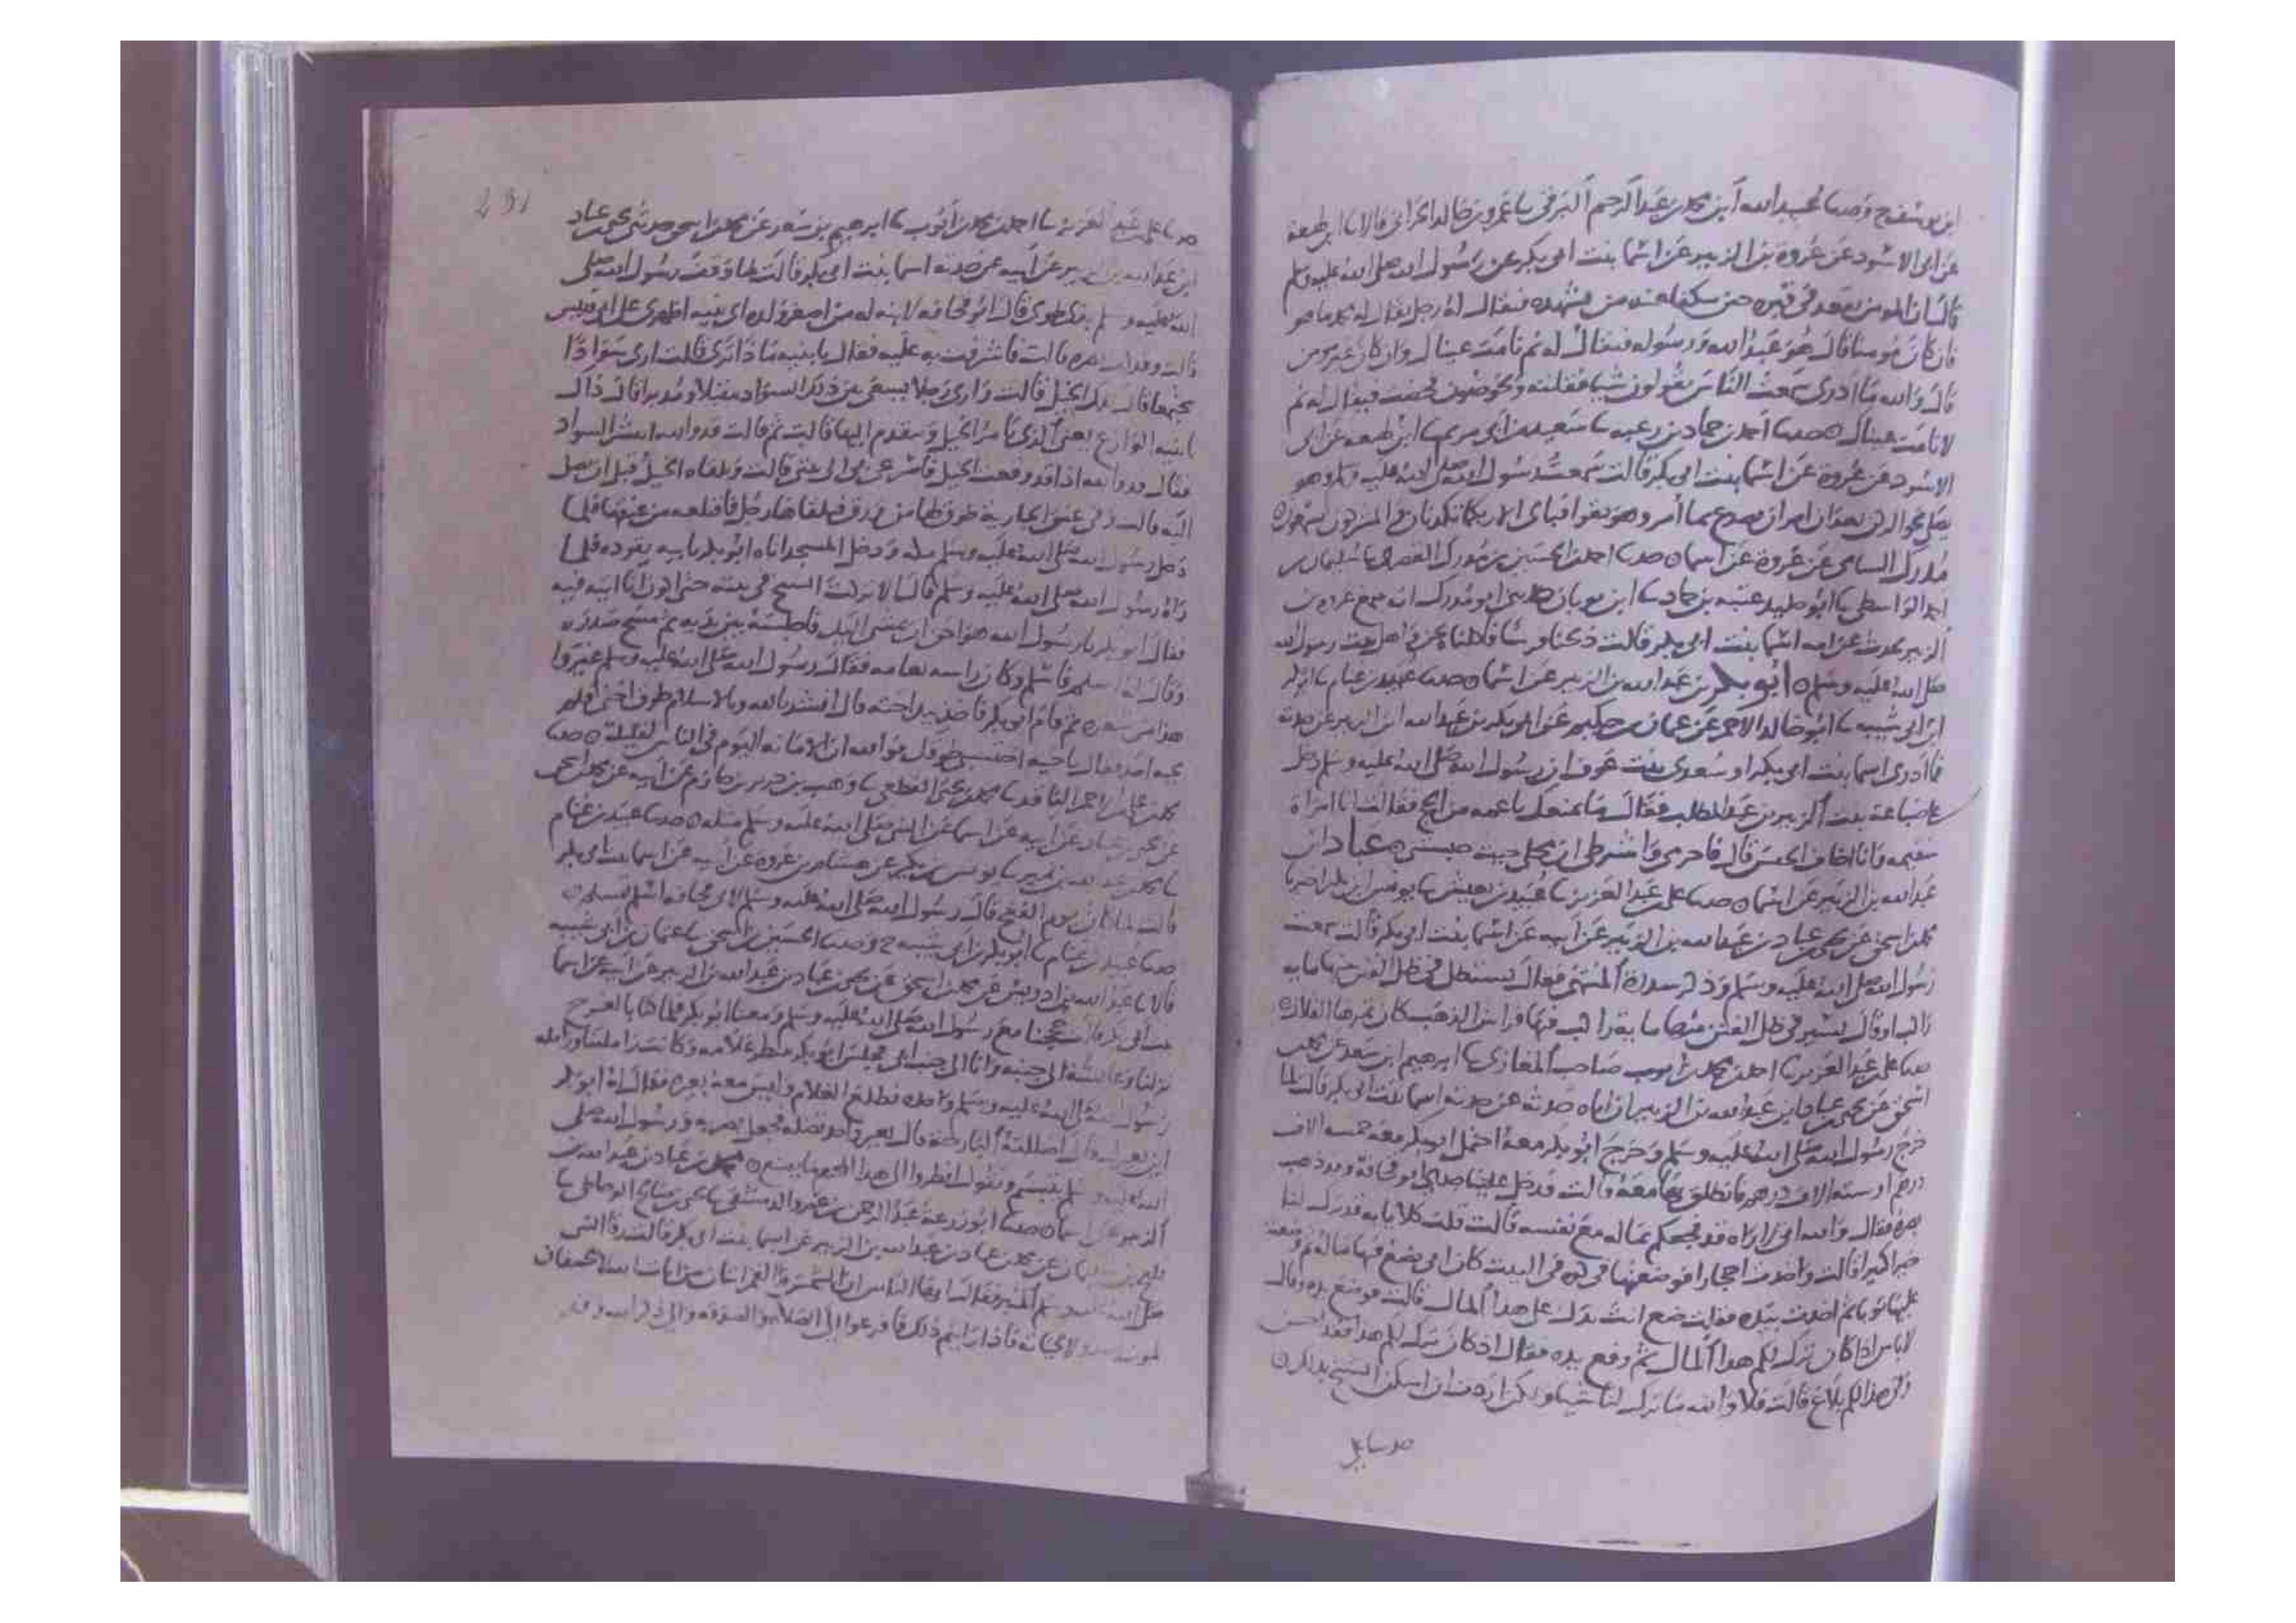 ابن يوسف ح وحدثنا عبيد الله ابن محمد بن عبد الرحيم البرقي نا عمرو بن خالد الحراني قالا نا ابن لهيعة
عن ابي الاسود عن عروة بن الزبير عن اسما بنت ابي بكر عن رسول الله صلى الله عليه وسلم
قال ان المومن يقعد في قبره حين ينكفا عنه من يشهده فيقال له رجل يقال له محمد ما هو
فان كان مومنا قال هو عبد الله ورسوله فيقال له نم نامت عينال وان كان غير مومن
قال والله ما ادرى سمعت الناس يقولون شيا فقلته ويخوضون فخضت فيقال له نم
لا نامت عينال حدثنا احمد بن حماد بن رغبه نا سعيد بن ابي مريم نا ابن لهيعه عن ابي
الاسود عن عروة عن اسما بنت ابي بكر قالت سمعت رسول الله صلى الله عليه وسلم وهو
يصلي نحو الركن بعد ان امر ان يصدع بما امر وهو يقرا فباى الا ربكما تكذبان والمشركون يسمعون
مدرك السامي عن عروة عن اسما حدثنا احمد بن الحسين بن مدرك القصري نا سليمان بن
احمد الواسطي نا ابو خليد عتبه بن حماد نا ابن ثوبان حدثني ابو مدرك انه سمع عروه بن
الزبير يحدث عن امه اسما بنت ابي بكر قالت ذبحنا فرسا فاكلناه نحن واهل بيت رسول الله
صلى الله عليه وسلم ابو بكر بن عبد الله بن الزبير عن اسما حدثنا عبيد بن غنام نا ابو بكر
ابن ابي شيبه نا ابو خالد الاحمر عن عثمان بن حكيم عن ابي بكر بن عبد الله ابن الزبير عن جدته
فما ادرى اسما بنت ابي بكر او سعدى بنت عوف ان رسول الله صلى الله عليه وسلم دخل
على ضباعة بنت الزبير بن عبد المطلب فقال ما يمنعك يا عمه من الحج فقالت انا امراة
سقيمه وانا اخاف الحبس قال فاحرمي واشترطي ان محلي حيث حبست عباد بن
عبد الله بن الزبير عن اسما حدثنا علي بن عبد العزيز نا عبيد بن يعيش نا يونس ابن بكير اخبرنا
محمد بن اسحق عن يحيى بن عباد بن عبد الله بن الزبير عن ابيه عن اسما بنت ابي بكر قالت سمعت
رسول الله صلى الله عليه وسلم وذكر سدرة المنتهى فقال يستظل في ظل الفنن منها مايه
راكب او قال يسير في ظل الفنن منها ماية راكب فيها فراش الذهب كان ثمرها القلال
حدثنا علي بن عبد العزيز نا احمد بن محمد بن ايوب صاحب المغازي نا ابرهيم ابن سعد عن محمد بن
اسحق عن يحيى بن عباد ابن عبد الله بن الزبير ان اباه حدثه عن جدته اسما بنت ابي بكر قالت لما
خرج رسول الله صلى الله عليه وسلم وخرج ابو بكر معه احتمل ابو بكر معه خمسه الاف
درهم او سته الاف درهم فانطلق بها معه قالت فدخل علينا جدي ابو قحافة وقد ذهب
بصره فقال والله اني لاراه قد فجعكم بماله مع نفسه قالت قلت كلا يا ابه قد ترك لنا
خيرا كثيرا قالت واخذت احجارا فوضعتها في كوه في البيت كان ابي يضع فيها ماله ثم وضعت
عليها ثوبا ثم اخذت بيده فقلت ضع ابت يدك على هذا المال قالت فوضع يده وقال
لا باس اذا كان ترك لكم هذا المال ثم رفع يده فقال اذ كان ترك لكم هذا فقد احسن
وفي هذا لكم بلاغ قالت فلا والله ما ترك لنا شيا ولكن اردت ان اسكن الشيخ بذلك
حدثنا علي
231
حدثنا علي بن عبد العزيز نا احمد بن محمد بن ايوب نا ابرهيم بن سعد عن محمد بن اسحق حدثني يحيى بن عباد
ابن عبد الله بن الزبير عن ابيه عن جدته اسما بنت ابي بكر قالت لما وقف رسول الله صلى
الله عليه وسلم بذي طوى قال ابو قحافه لابنه له من اصغر ولده اى بنيه اظهرى على ابي قبيس
قالت وقد كف بصره قالت فاشرفت به عليه فقال يا بنيه ماذا ترى قالت ارى سوادا
مجتمعا قال تلك الخيل قالت وارى رجلا يسعى بين ذلك السواد مقبلا ومدبرا قال ذاك
يا بنيه الوازع يعني الذي يامر الخيل ويتقدم اليها قالت ثم قالت قد والله انتشر السواد
فقال قد والله اذا قد دفعت الخيل فاسرعي بي الى بيتي قالت وتلقاه الخيل قبل ان يصل
اليه قالت وفي عنق الجارية طوق لها من ورق فيلقاها رجل فاقتلعه من عنقها فلما
دخل رسول الله صلى الله عليه وسلم مكة ودخل المسجد اتاه ابو بكر بابيه يقوده فلما
راه رسول الله صلى الله عليه وسلم قال الا تركت الشيخ في بيته حتى اكون انا اتيه فيه
فقال ابو بكر يا رسول الله هو احق ان يمشي اليك فاجلسه بين يديه ثم مسح صدره
وقال له اسلم فاسلم وكان راسه ثغامه فقال رسول الله صلى الله عليه وسلم غيروا
هذا من شعره ثم قام ابو بكر فاخذ بيد اخته قال انشد بالله وبالاسلام طوق اختي فلم
يجبه احد فقال يا اخيه احتسبي طوقك فوالله ان الامانه اليوم في الناس لقليلة حدثنا
محمد بن علي بن احمر الناقد نا محمد بن يحيى القطعي نا وهب بن جرير بن حازم عن ابيه عن محمد بن اسحق
عن يحيى بن عباد عن ابيه عن اسما عن النبي صلى الله عليه وسلم مثله حدثنا عبيد بن غنام
نا محمد بن عبد الله بن نمير نا يونس بن بكير عن هشام بن عروة عن ابيه عن اسما بنت ابي بكر
قالت لما كان يوم الفتح قال رسول الله صلى الله عليه وسلم لابي قحافه اسلم تسلم
حدثنا عبيد بن غنام نا ابو بكر بن ابي شيبه ح وحدثنا الحسين بن اسحق نا عثمان بن ابي شيبه
قالا نا عبد الله بن ادريس عن محمد بن اسحق عن يحيى بن عباد بن عبد الله بن الزبير عن ابيه عن اسما
بنت ابي بكر قالت حججنا مع رسول الله صلى الله عليه وسلم ومعنا ابو بكر فلما كنا بالعرج
نزلنا وعائشة الى جنبه وانا الى جنب ابي فجلس ابو بكر ينتظر غلامه وكانت زاملتنا وزامله
رسول الله صلى الله عليه وسلم واحده فطلع الغلام وليس معه بعيره فقال له ابو بكر
اين بعيرك قال اضللته البارحة قال بعير واحد تضله فجعل يضربه ورسول الله صلى
الله عليه وسلم يتبسم ويقول انظروا الى هذا المحرم ما يصنع محمد بن عباد بن عبد الله بن
الزبير عن اسما حدثنا ابو زرعة عبد الرحمن بن عمرو الدمشقي نا يحيى بن صالح الوحاظي نا
فليح بن سليمان عن محمد بن عباد بن عبد الله بن الزبير عن اسما بنت ابي بكر قالت رقا النبي
صلى الله عليه وسلم المنبر فقال يا ايها الناس ان الشمس والقمر ايتان من ايات الله لا يخسفان
لموت احد ولا لحياته فاذا رايتم ذلك فافزعوا الى الصلاة والصدقه والى ذكر الله